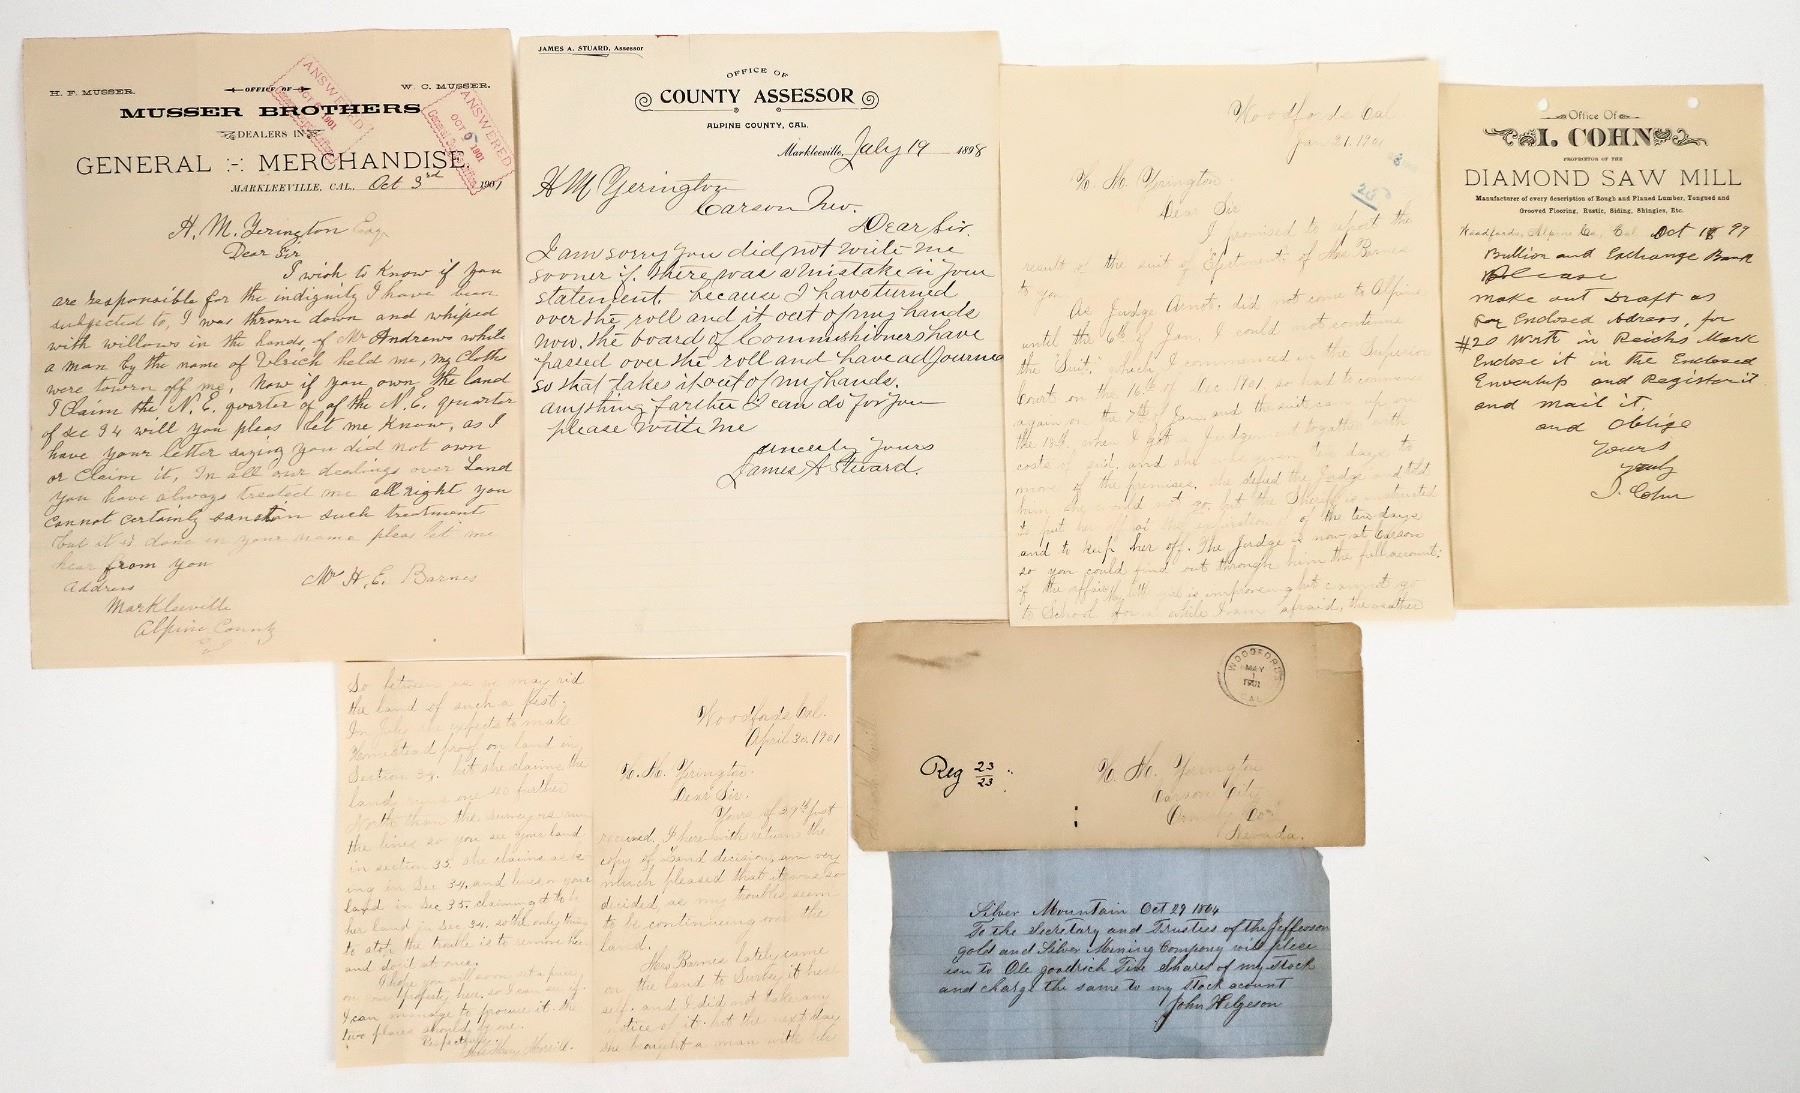 H. F. MUSSER.
OFFICE OF
W. C. MUSSER.
MUSSER BROTHERS
DEALERS IN
GENERAL MERCHANDISE.
MARKLEEVILLE, CAL. Oct 3rd 1901
ANSWERED
OCT 1901
ANSWERED
OCT 9 1901
H. M. Yerington Esq
Dear Sir
I wish to know if you
are responsible for the indignity I have been
subjected to, I was thrown down and whiped
with willows in the hands of Mr Andrews while
a man by the name of Ulrich held me, my Cloths
were towrn off me, Now if you own the land
I Claim the N. E. quarter of of the N. E. quarter
of Sec 34 will you pleas let me know, as I
have your letter saying you did not own
or Claim it, In all our dealings over Land
you have always treated me all right you
cannot certainly sanction such treatment
but it is done in your name pleas let me
hear from you
Address
Mrs H. E. Barnes
Markleeville
Alpine County
Cal
JAMES A. STUARD, Assessor
OFFICE OF
COUNTY ASSESSOR
ALPINE COUNTY, CAL.
Markleeville, July 19 1898
H M Yerington
Carson Nev.
Dear Sir,
I am sorry you did not write me
sooner if there was a mistake in your
statement. because I have turned
over the roll and it out of my hands
now. the board of Commishioners have
passed over the roll and have adjourned
so that takes it out of my hands.
anything farther I can do for you
please write me
Sincerly yours
James A Stuard.
Woodfords Cal
Jan 21, 1901
25
H. M. Yerington.
Dear Sir
I promised to report the
result of the suit of Ejectment of Mrs Barnes
to you
As Judge Arnot. did not come to Alpine
until the 6th of Jan, I could not continue
the "Suit" which I commenced in the Superior
Courts on the 16th of Dec 1901, so had to commence
again on the 7th of Jan, and the suit came up on
the 18th when I got a Judgement togather with
costs of suit, and she was given ten days to
move of the premises. She defied the Judge and told
him she would not go, but the Sheriff is instructed
to put her off at the expiration of the ten days
and to keep her off. The Judge is now at Carson
so you could find out through him the full account,
of the affair. My little girl is improveing but cannot go
to School for a while I am afraid, the weather
Office Of
I. COHN
PROPRIETOR OF THE
DIAMOND SAW MILL
Manufacturer of every description of Rough and Planed Lumber, Tongued and
Grooved Flooring, Rustic, Siding, Shingles, Etc.
Woodfords, Alpine Co., Cal Oct 18 99
Bullion and Exchange Bank
Please
make out Draft as
per Enclosed Adress, for
#20 Worth in Reichs Mark
Enclose it in the Enclosed
Envertup and Register it
and mail it,
and oblige
Yours
truly
I. Cohn
So between us we may rid
the land of such a pest.
In July she expects to make
Homestead proof on land in
Section 34. but she claims the
land runs one 40 further
North than the survey
the lines so you see your land
in section 35 she claims as be
ing in Sec 34, and lives on your
land in Sec 35. claiming it to be
her land in Sec 34. so the only thing
to stop the trouble is to remove her
and do it at once.
I hope you will soon set a price
on our property here, so I can see if
I can manage to procure it. the
two places should be one.
Respectfully
Mrs Mary Merrill.
Woodfords Cal.
April 30, 1901
H. M. Yerington.
Dear Sir.
Yours of 27th just
received, I herewith return the
copy of Land decision, am very
much pleased that it was so
decided, as my troubles seem
to be continueing over the
land.
Mrs Barnes lately came
on the land to Survey it her
self. and I did not take any
notice of it. but the next day
she brought a man with her
WOODFORDS
MAY
1
1901
CAL
Reg 23
23
H. M. Yerington
Carson City
Ormsby Co.
Nevada.
Silver Mountain Oct 29 1864
To the Secretary and Trustees of the Jefferson
gold and Silver Mining Company will pleese
isu to Ole goodrich Five Shares of my Stock
and charge the same to my Stock acount
John Helgeson